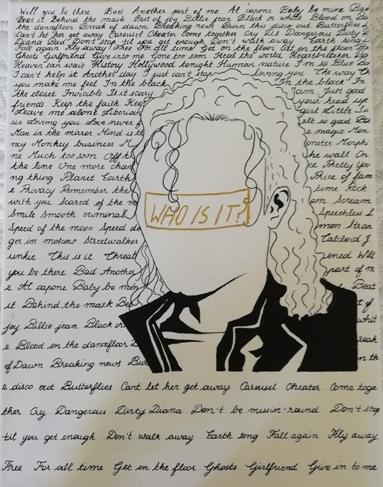 Will you be there Bad Another part of me Al capone Baby be mine
Beat it Behind the mask Best of joy Billie jean Black or white Blood on
the dancefloor Break of dawn Breaking news Burn this disco out Butterflies
Cant let her get away Carousel Cheater Come together Cry Dangerous Dirty
Diana Don't stop til you get enough Don't walk away Earth song
Fall again Fly away Free For all time Get on the floor
Ghosts Girlfriend Give in to me Gone too soon Heal the world Heartbreaker
Heaven can wait History Hollywood tonight Human nature
I can't help it Another day I just can't stop loving you The way
you make me feel In the black In the back In
The closet Invincible Is it scary Jam Just good
friends Keep the faith Keep your head up
Leave me alone Liberian girl Little
sie loving you Love never felt so good
Man in the mirror Mind is the magic Mon
ney Monkey business M onster Morph
ne Much too soon Off the he wall On
the line One more chan ce Pretty you
ng thing Planet Earth Price of fame
e Privacy Remember the time Rock
with you Scared of the m oon Scream
WHO IS IT?
Smile Smooth criminal Speechless
Speed of the moon Speed de mon Stran
ger in moscow Streetwalker Tabloid J
unkie This is it Threat ened Will
you be there Bad Another part of m
e Al capone Baby be min Beat
it Behind the mask Bes
joy Billie jean Black or whit
e Blood on the dancefloor Break
of Dawn Breaking news Bur
e disco out Butterflies Cant let her get away Carousel Cheater Come toge
ther Cry Dangerous Dirty Diana Don't be messin' round Don't stop
til you get enough Don't walk away Earth song Fall again Fly away
Free For all time Get on the floor Ghosts Girlfriend Give in to me